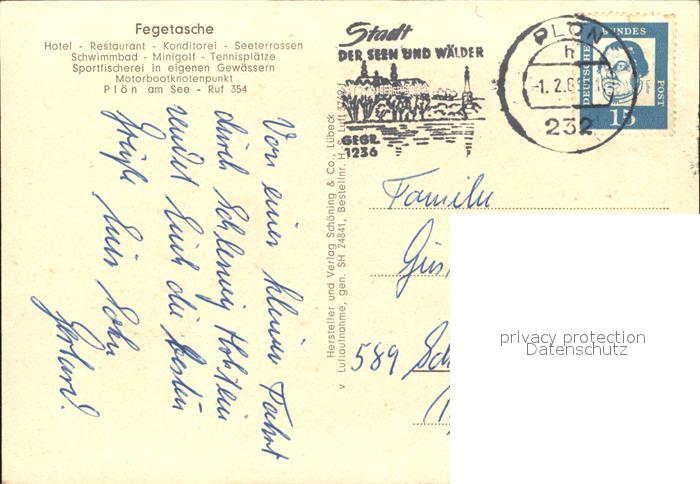 Fegetasche
Hotel - Restaurant - Konditorei - Seeterrassen
Schwimmbad - Minigolf - Tennisplätze
Sportfischerei in eigenen Gewässern
Motorbootknotenpunkt
Plön am See - Ruf 354
Von einer kleinen Fahrt
durch Schleswig Holstein
sendet Euch die besten
Grüße Euer Sohn
Gerhard.
Hersteller und Verlag Schöning & Co., Lübeck
Luftaufnahme, gen. SH 24841, Bestellnr. H. S. Luft
Stadt
DER SEEN UND WÄLDER
GEGR.
1236
PLÖN
h
-1.2.6
232
DEUTSCHE BUNDES POST
15
Familie
Gus
589 Sch
privacy protection
Datenschutz